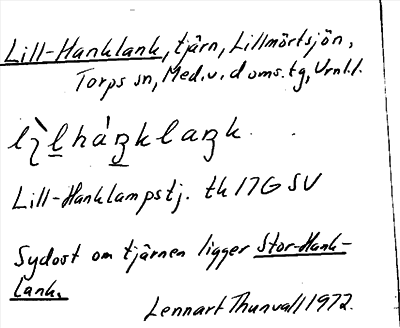 Lill-Hanklank, tjärn, Lillmörtsjön,
Torps sn, Med.v. doms.tg, Vrnl.l.
Lill-Hanklampstj. tk 17G SV
Sydost om tjärnen ligger Stor-Hank-
lank.
Lennart Thunvall 1972.